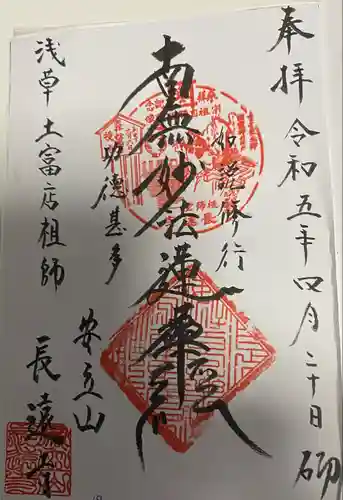 奉拝 令和五年四月二十日 砌
如説修行
南無妙法蓮華経
功徳甚多
安立山
浅草 土富店祖師 長遠寺